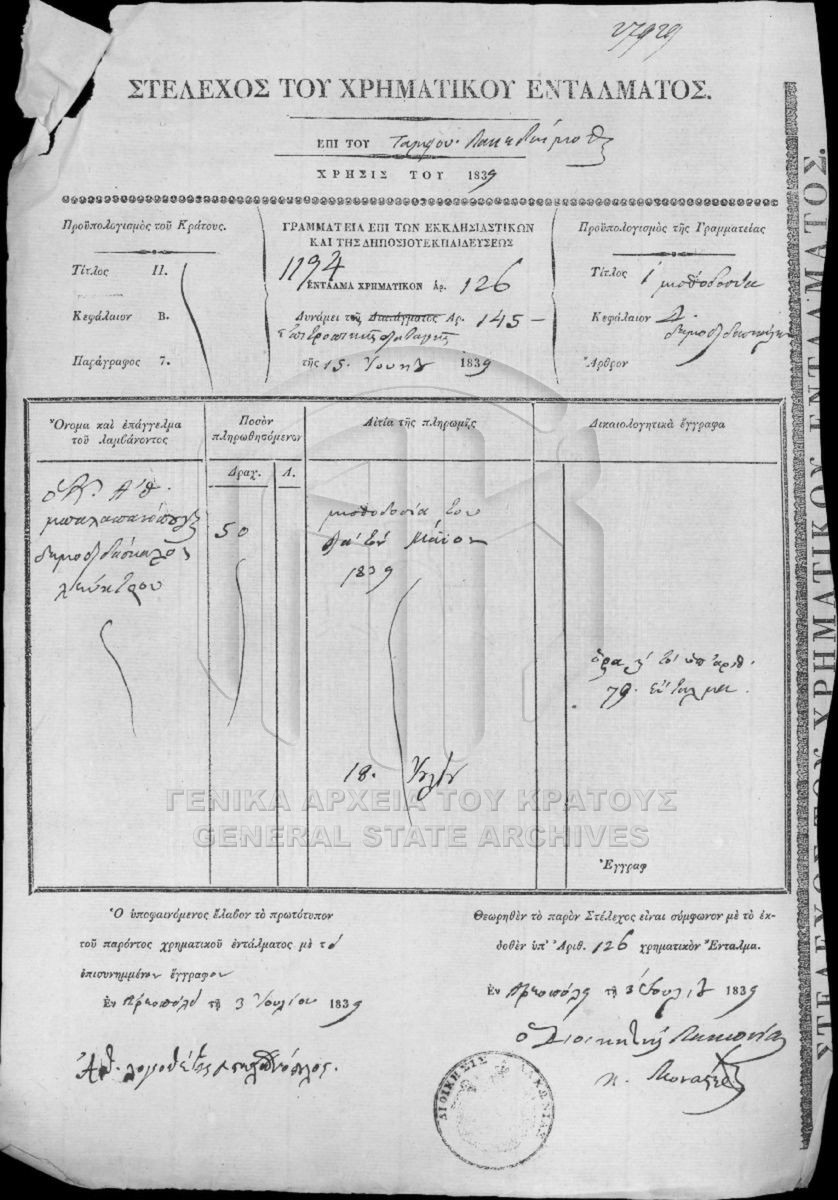 27929
ΣΤΕΛΕΧΟΣ ΤΟΥ ΧΡΗΜΑΤΙΚΟΥ ΕΝΤΑΛΜΑΤΟΣ.
ΕΠΙ ΤΟΥ
ΧΡΗΣΙΣ ΤΟΥ 1839
Προϋπολογισμὸς τοῦ Κράτους.
Τίτλος II.
Κεφάλαιον Β.
Παράγραφος 7.
ΓΡΑΜΜΑΤΕΙΑ ΕΠΙ ΤΩΝ ΕΚΚΛΗΣΙΑΣΤΙΚΩΝ
ΚΑΙ ΤΗΣ ΔΗΜΟΣΙΟΥ ΕΚΠΑΙΔΕΥΣΕΩΣ
1194
ΕΝΤΑΛΜΑ ΧΡΗΜΑΤΙΚΟΝ Ἀρ. 126
Δυνάμει τῆς Διατάγματος Ἀρ. 145
τῆς 15 1839
Προϋπολογισμὸς τῆς Γραμματείας
Τίτλος 1 μισθοδοσία
Κεφάλαιον Δ.
Ἄρθρον
Ὄνομα καὶ ἐπάγγελμα
τοῦ λαμβάνοντος
Ποσὸν
πληρωθησόμενον
Δραχ. Λ.
Αἰτία τῆς πληρωμῆς
Δικαιολογητικὰ ἔγγραφα
δημοδιδάσκαλος
50
μισθοδοσία του
διὰ τὸν Μάϊον
1839
79.
18.
Ἔγγραφ
Ὁ ὑποφαινόμενος ἔλαβον τὸ πρωτότυπον
τοῦ παρόντος χρηματικοῦ ἐντάλματος μὲ τὸ
ἐπισυνημμένον ἔγγραφον
Ἐν Ἀρεοπόλει τῇ 3 Ἰουλίου 1839
Θεωρηθὲν τὸ παρὸν Στέλεχος εἶναι σύμφωνον μὲ τὸ ἐκ-
δοθὲν ὑπ' Ἀριθ. 126 χρηματικὸν Ἔνταλμα.
Ἐν Ἀρεοπόλει τῇ 3 Ἰουλίου 1839
ὁ Διοικητὴς Λακωνίας
ΔΙΟΙΚΗΣΙΣ ΛΑΚΩΝΙΑΣ
ΣΤΕΛΕΧΟΣ ΤΟΥ ΧΡΗΜΑΤΙΚΟΥ ΕΝΤΑΛΜΑΤΟΣ.
ΓΕΝΙΚΑ ΑΡΧΕΙΑ ΤΟΥ ΚΡΑΤΟΥΣ
GENERAL STATE ARCHIVES